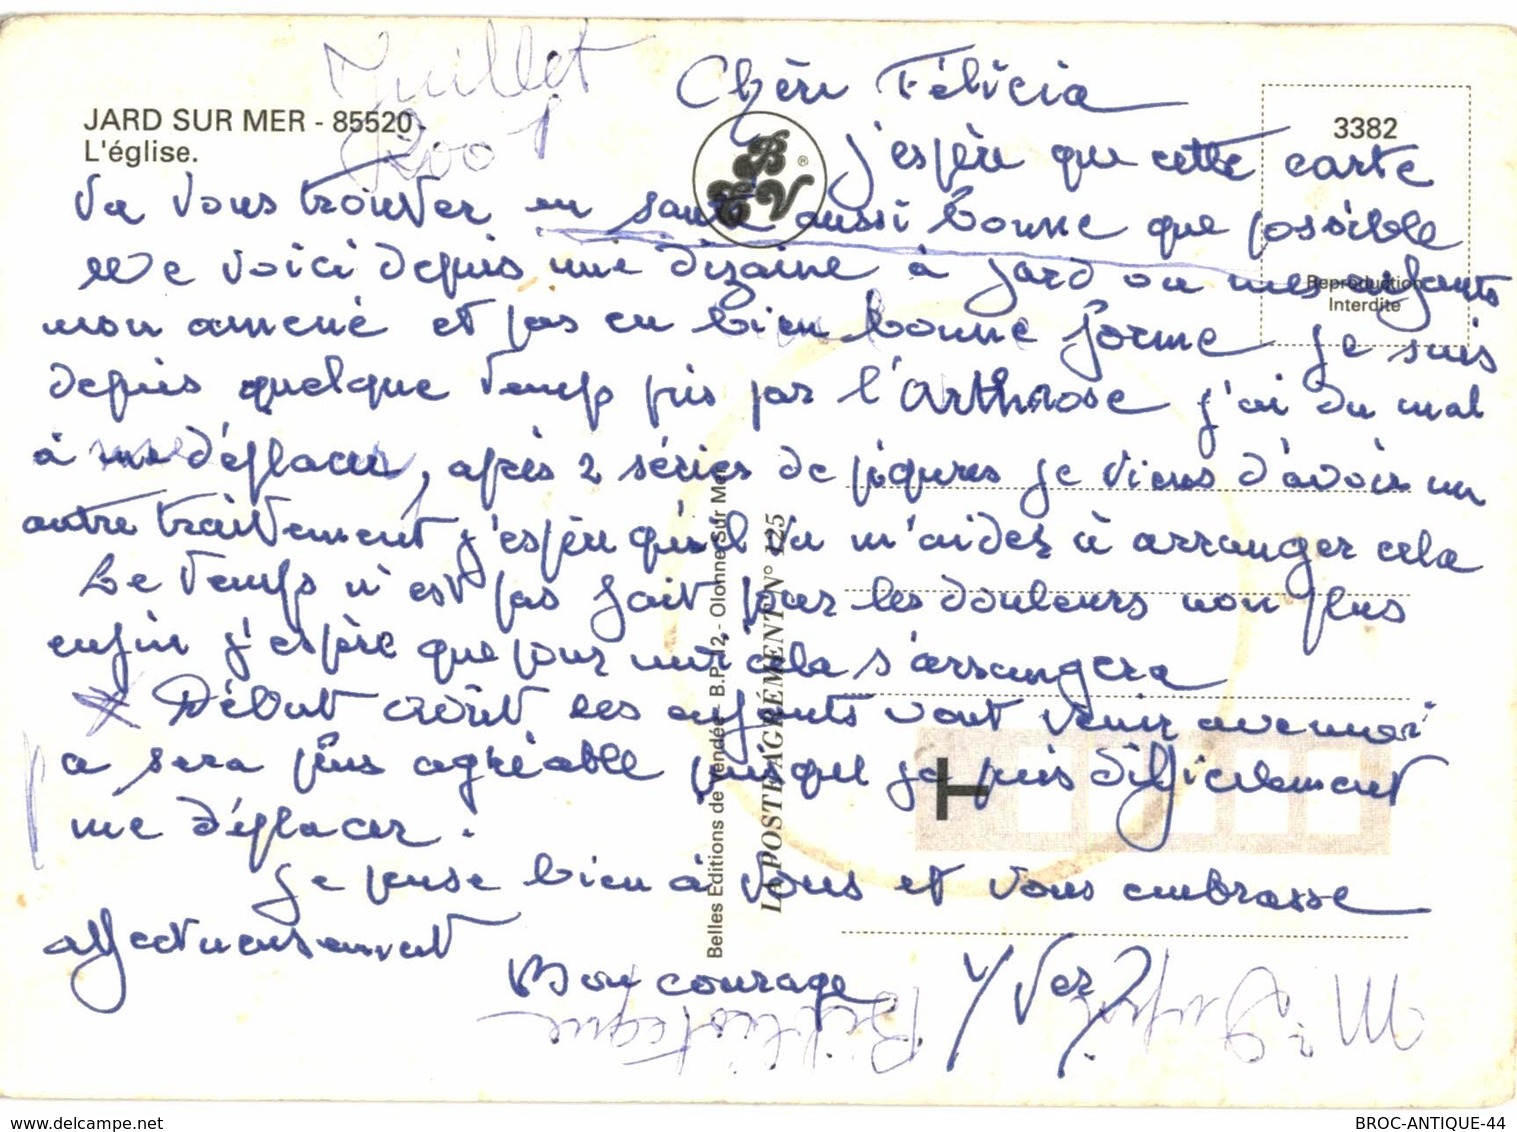 Juillet
2001
JARD SUR MER - 85520
L'église.
3382
Reproduction
Interdite
Chère Félicia
j'espère que cette carte
va vous trouver en santé aussi bonne que possible
Me voici depuis une dizaine à Jard ou mes enfants
mon amené et pas en bien bonne forme je suis
depuis quelque temps pris par l'Arthrose j'ai du mal
à me déplacer, après 2 séries de piqures je viens d'avoir un
autre traitement j'espère qu'il va m'aider à arranger cela
Le temps n'est pas fait pour les douleurs non plus
enfin j'espère que pour moi cela s'arrangera
Début août les enfants vont venir avec moi
ca sera plus agréable puisque je puis difficilement
me déplacer.
Je pense bien à vous et vous embrasse
affectueusement
Bon courage
Belles Editions de Vendée - B.P. 12 - Olonne Sur Mer
LA POSTE AGRÉMENT N° 125
T
B
V
®
Bibliotèque
delcampe.net
BROC-ANTIQUE-44